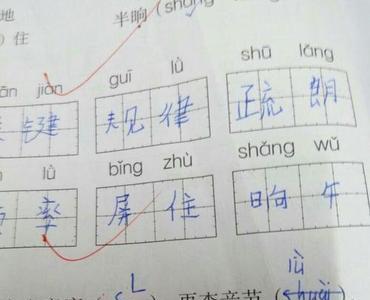 地 半晌(shǎng
)住
ān jiàn guī lǜ shū lǎng
键 规律 疏朗
lǜ bǐng zhù shǎng wǔ
率 屏住 晌午
lǜ
再查音节(